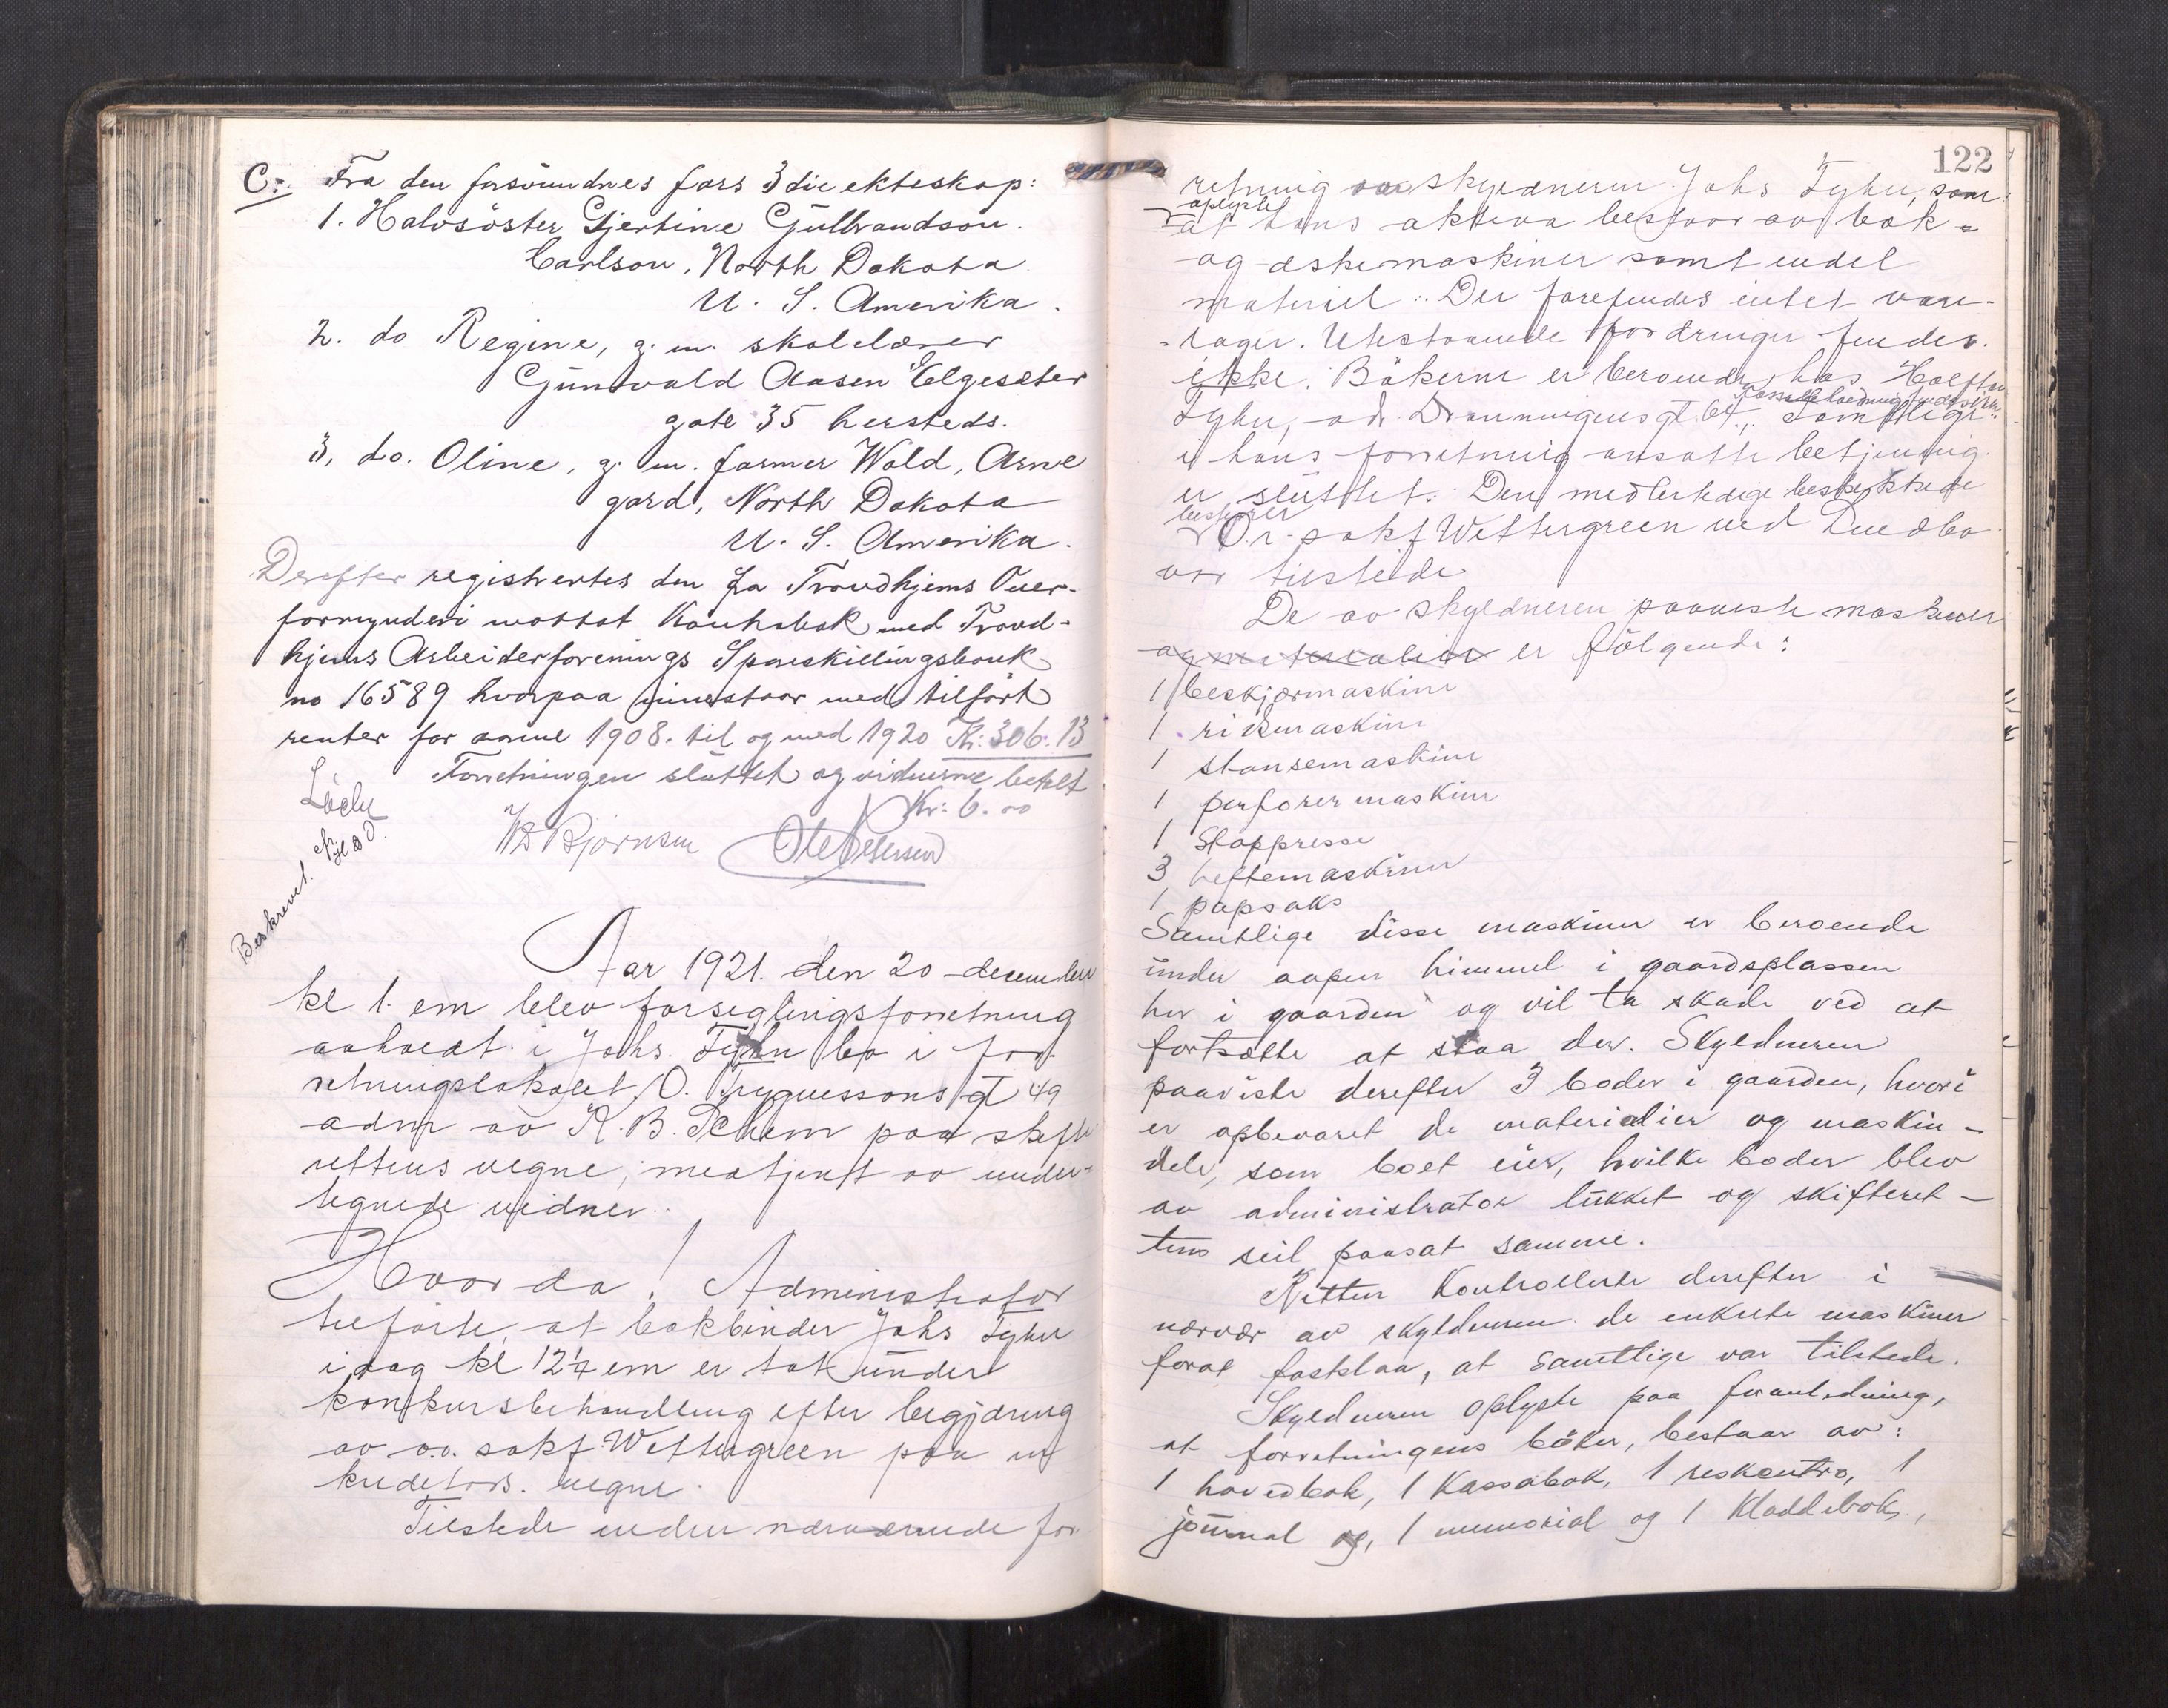 C:. Fra den forsvundnes fars 3die ekteskap:
1. Halvsöster Gjertine Gulbrandson.
Carlson, North Dakota
U. S. Amerika.
2. do Regine, g. m. skolelærer
Gunvald Aasen Elgeseter
gate 35 hersteds.
3, do. Oline, g. m. farmer Wold, Arne
gard, North Dakota
U. S. Amerika.
Derefter registrertes den fra Trondhjems Over-
formynderi mottat Kontrabok med Trond-
hjems Arbeiderforenings Spareskillingsbank
no 16589 hvorpaa innestaar med tilfört
renter for aarene 1908. til og med 1920 Kr: 306.13
Forretningen sluttet og vidnerne betalt
Kr: 6.00
Bjørnsen Ole Petersen
Beskrevet.
Aar 1921. den 20 december
kl 1. em blev forseglingsforretning
avholdt i Johs. Tyhn bo i for-
retningslokalet, O. Trygvessons gt 49
adm av K. B. Schem paa skifte
rettens vegne, medtjent av under-
tegnede vidner.
Hvorda! Administrator
tilförte, at bokbinder Johs Tyhn
idag kl 12¼ em er tat under
konkursbehandling efter begjæring
av o.r. sakf. Wettergreen paa en
kreditors. vegne.
Tilstede under nærværende for
122
retning var skyldneren Johs Tyhn, som
oplyste
at hans aktiva bestaar av bok-
og eskemaskiner samt endel
materiel. Der forefindes intet vare-
lager. Utestaaende fordringer findes.
ikke. Bökerne er beroende hos
Tyhn, adr. Dronningens gt. 64. Samtlige
i hans forretning ansatte betjening
er sluttet. Den midlertidige beskikkede
bestyrer
O.r. sakf Wettergreen ved Lindbo
var tilstede.
De av skyldneren paaviste maskiner
og materialier er fölgende:
1 beskjærmaskine
1 rismaskine
1 stansemaskine
1 perforermaskine
1 Stoppresse
3 heftemaskiner
1 papsaks
Samtlige disse maskiner er beroende
under aapen himmel i gaardsplassen
her i gaarden og vil ta skade ved at
fortsætte at staa der. Skyldneren
paaviste derefter 3 boder i gaarden, hvori
er opbevaret de materialier og maskin-
dele, som boet eier, hvilke boder blev
av administrator lukket og skifteret-
tens seil paasat samme.
Retten kontrollerte derefter i
nærvær av skyldneren de enkelte maskiner
forat fastslaa, at samtlige var tilstede.
Skyldneren oplyste paa foranledning,
at forretningens böker, bestaar av:
1 hovedbok, 1 Kassabok, 1 reskontro, 1
journal og, 1 memorial og 1 Kladdebok,